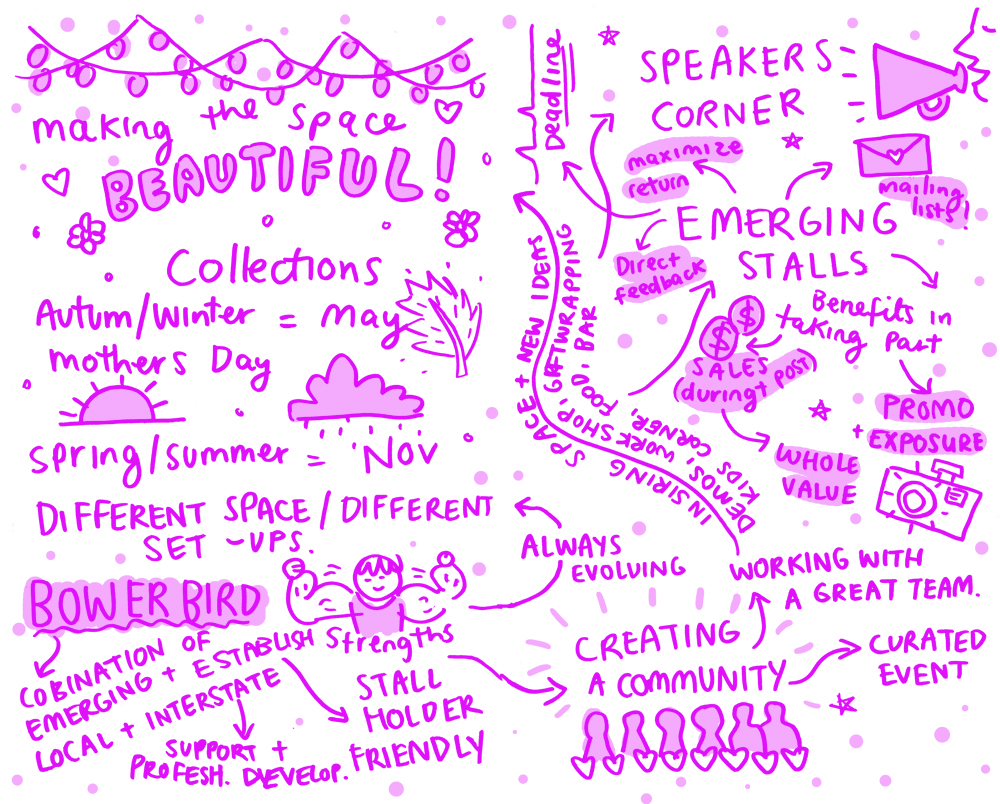 making the space
BEAUTIFUL!
Collections
Autum/Winter = may
mothers Day
spring/summer = Nov
DIFFERENT SPACE/DIFFERENT
SET -UPS.
BOWERBIRD
Strengths
COBINATION OF
EMERGING + ESTABLISH
LOCAL + INTERSTATE
SUPPORT +
PROFESH. DEVELOP.
STALL
HOLDER
FRIENDLY
ALWAYS
EVOLVING
CREATING
A COMMUNITY
CURATED
EVENT
WORKING WITH
A GREAT TEAM.
INSIRING SPACE + NEW IDEAS
DEMOS, WORKSHOP, GIFTWRAPPING
KIDS CORNER, FOOD, BAR
Deadline
SPEAKERS
CORNER
maximize
return
mailing
lists!
EMERGING
STALLS
Direct
feedback
Benefits in
taking Part
$ $
SALES
(during + POST)
WHOLE
VALUE
PROMO
+ EXPOSURE